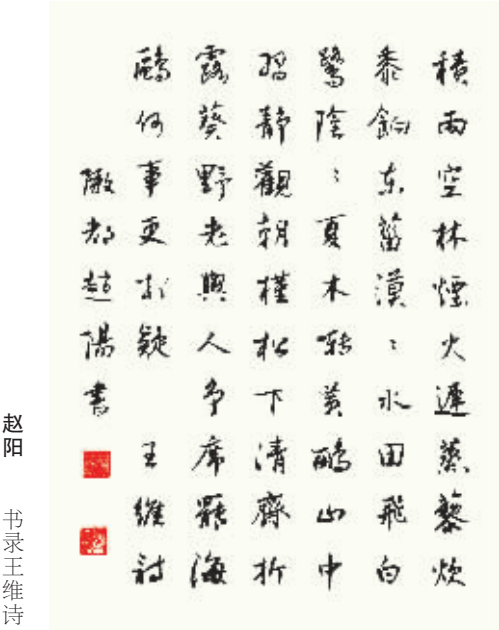 積雨空林煙火遲蒸藜炊
黍餉东菑漠〻水田飛白
鷺陰〻夏木啭黃鸝山中
習靜觀朝槿松下清齋折
露葵野老與人争席罷海
鷗何事更相疑 王維詩
隞都趙陽書
赵阳
书录王维诗